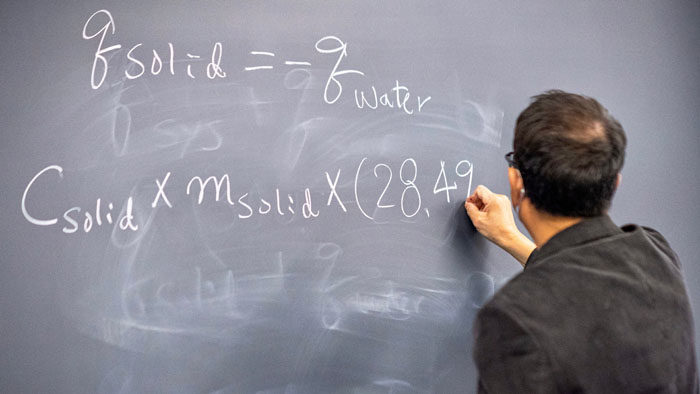 q solid = - q water
C solid x m solid x (28.49